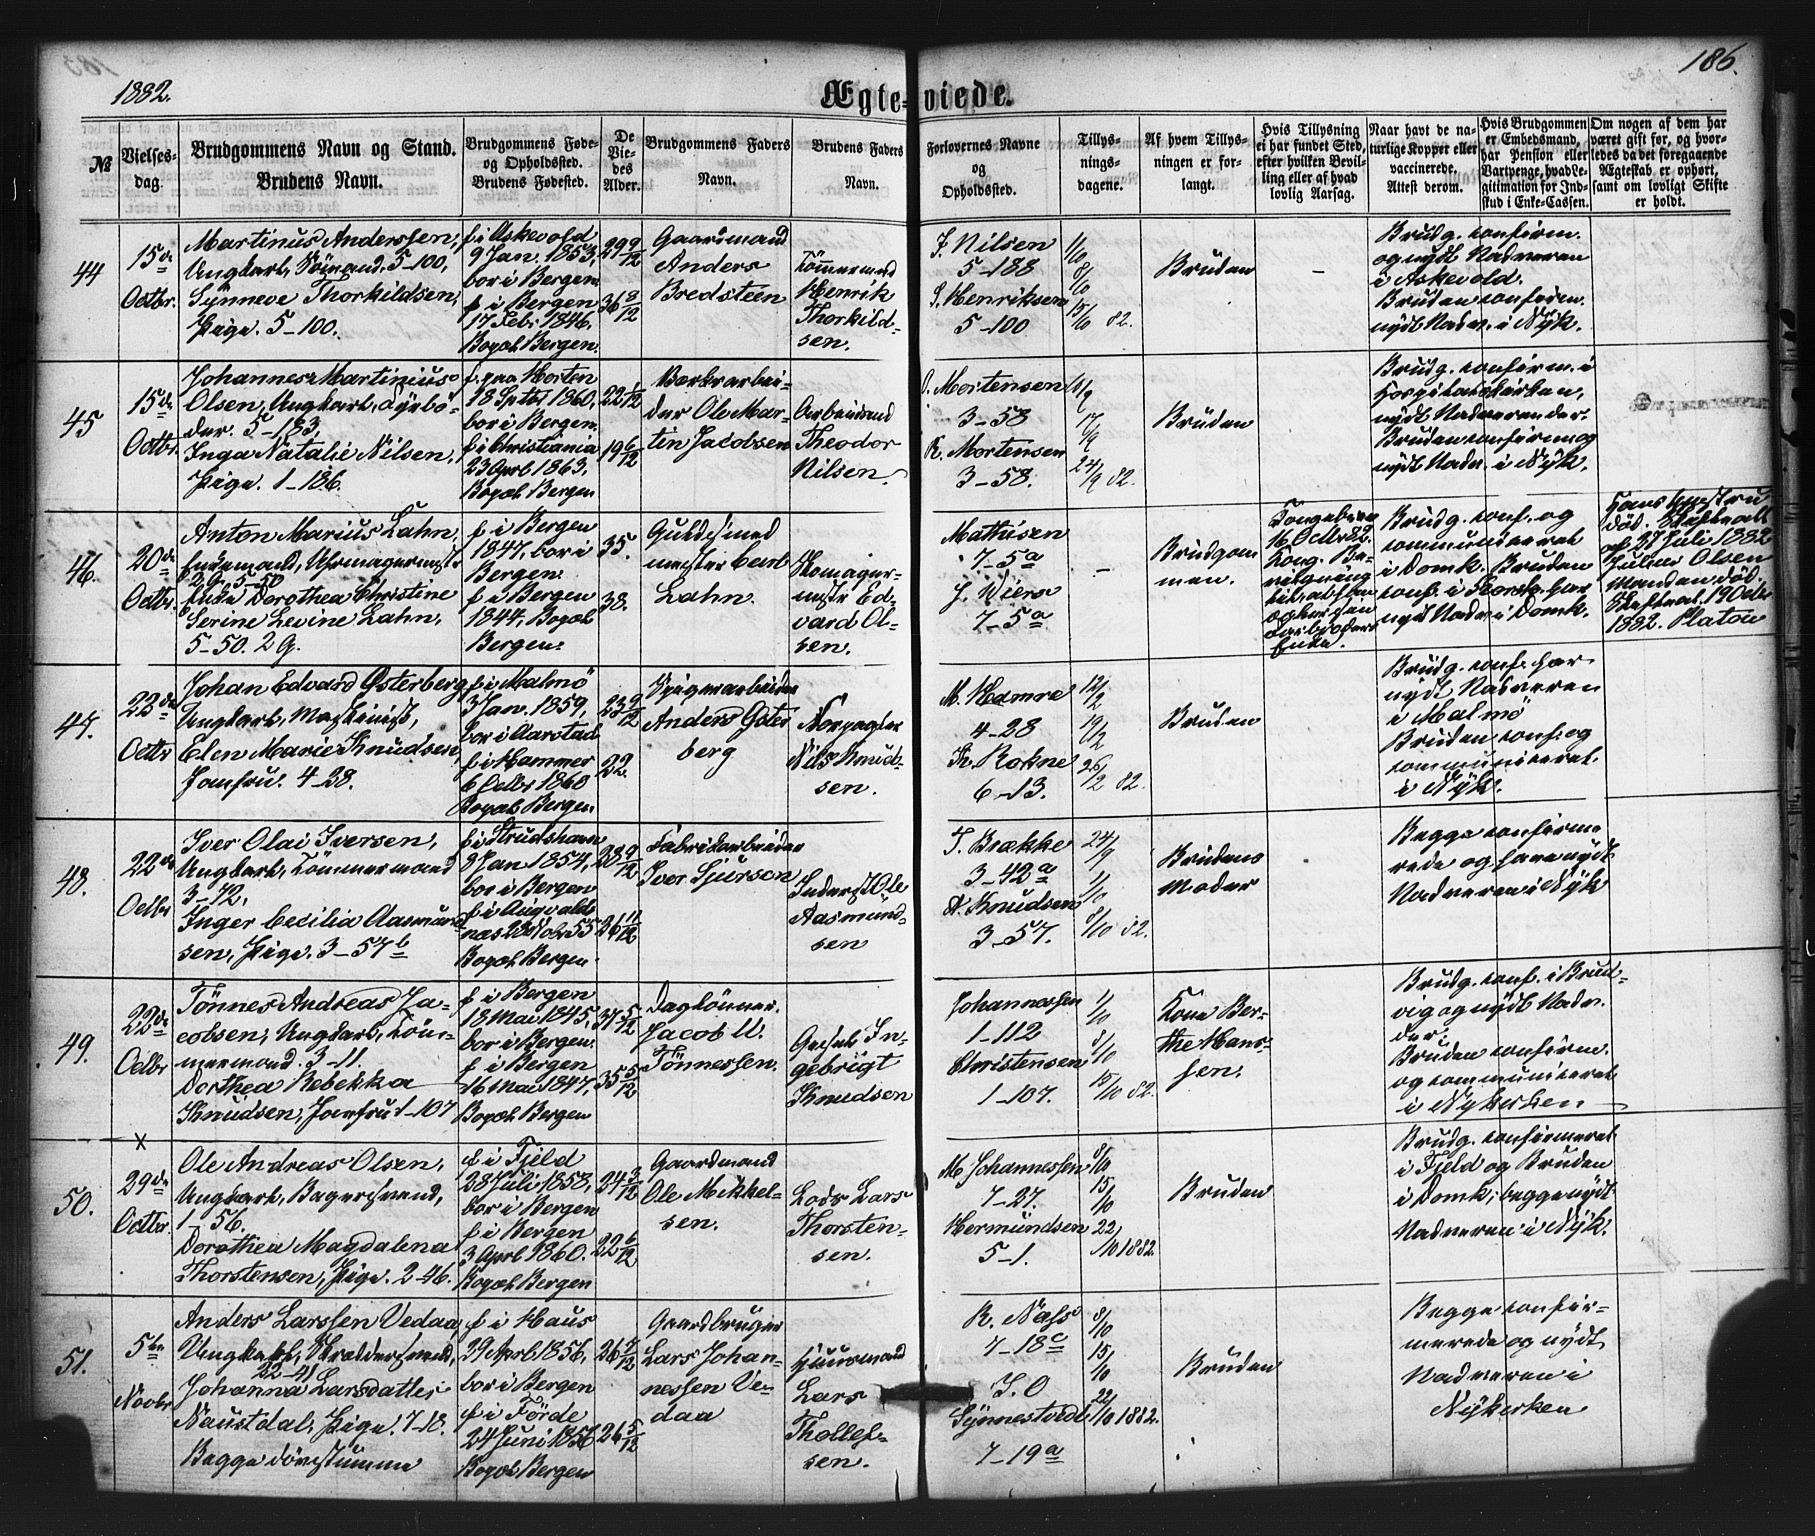 1882.
Ægte=viede.
186.
№
Vielses-
dag.
Brudgommens Navn og Stand.
Brudens Navn.
Brudgommens Føde-
og Opholdssted.
Brudens Fødested.
De
Vie-
des
Alder.
Brudgommens Faders
Navn.
Brudens Faders
Navn.
Forlovernes Navne
og
Opholdssted.
Tillys-
nings-
dagene.
Af hvem Tillys-
ningen er for-
langt.
Hvis Tillysning
ei har fundet Sted,
efter hvilken Bevil-
ling eller af hvad
lovlig Aarsag.
Naar havt de na-
turlige Kopper eller
vaccinerede.
Attest derom.
Hvis Brudgommen
er Embedsmand,
har Pension eller
Vartpenge, hvad Le-
gitimation for Ind-
skud i Enke-Cassen.
Om nogen af dem har
været gift før, og hvor-
ledes da det foregaaende
Ægteskab er ophørt,
samt om lovligt Skifte
er holdt.
44
15de
Octbr.
Martinus Anderssen,
Ungkarl, Sömand. 5-100,
Synneve Thorkildsen,
Pige. 5-100.
f. i Askevold
9 Jan. 1853,
bor i Bergen
f. i Bergen
17 Febr 1846.
Bopæl Bergen.
29 9/12
36 8/12
Gaardmand
Anders
Bredsteen
Tömmermand
Henrik
Thorkild-
sen.
J. Nilsen
5-188
S. Henriksen
5-100
1/10
8/10
15/10 82.
Bruden
-
Brudg. confirm.
og nydt Nadveren
i Askevold.
Bruden confirm.
nydt Nadv. i Nyk.
45
15de
Octbr.
Johannes Martinius
Olsen, Ungkarl, Fyrbö-
der. 5-183,
Inga Natalie Nilsen,
Pige. 1-186.
f. paa Horten
18 Septbr 1860,
bor i Bergen
f. i Christiania
23 April 1863.
Bopæl Bergen
22 1/12
19 6/12
Værkarbei-
der Ole Mar-
tin Jacobsen
Arbeidsmd
Theodor
Nilsen.
O. Mortensen
3-58
R. Mortensen
3-58.
17/9
24/9 82.
Bruden
Brudg. confirm. i
Hospitalskirken,
nydt Nadveren der.
Bruden confirm. og
nydt Nadv. i Nyk.
46.
20de
Octbr.
Anton Marius Lahn,
Enkemand, Uhrmagermstr
2 G. 5-50
Enke Dorothea Christine
Serine Levine Lahn,
5-50. 2 G.
f. i Bergen
1847, bor i
Bergen.
f. i Bergen
1844, Bopæl
Bergen.
35.
38.
Guldsmed
mester Carl
Lahn.
Skomager-
mstr Ed-
vard Ol-
sen.
Mathisen
7-5a
J. Wiers
7-5a
-
Brudgom
men.
Kongebrev
16 Octbr 82.
Kong. Be-
vilgning
til
Brudg. conf. og
communiceret
i Domk. Bruden
conf. i Korsk. har
nydt Nadv. i Domk.
Hans Hustru
död. Skifteatt
af 27 Juli 1882
Julius Olsen
Manden död.
Skifteat. 19 Octbr
1882. Platou
47.
22de
Octbr
Johan Edvard Österberg
Ungkarl, Maskinist,
Elen Marie Knudsen,
Jomfru. 4-28.
f. i Malmö
3 Jan. 1859,
bor i Aarstad
f. i Hammer
6 Octbr 1860
Bopæl Bergen.
23 9/12
22.
Spigerarbeider
Anders Öster
berg
Nordfarer
Nils Knud-
sen.
M. Hamre
4-28
K. Rokne
6-13.
12/2
19/2
26/2 82.
Bruden
Brudg. conf. har
nydt Nadveren
i Malmö
Bruden conf. og
communiceret.
i Nyk.
48.
22de
Octbr
Iver Olai Iversen,
Ungkarl, Tömmermand
3-72.
Inger Cecilia Aasmund
sen, Pige. 3-57b
f. i Strudshavn
9 Jan. 1854,
bor i Bergen
f. i Augvalds
næs
Bopæl Bergen.
28 9/12
26 11/12
Fabrikarbeider
Iver Sjursen
Inderst Ole
Aasmund-
sen
T. Brække
3-42a
A. Knudsen
3-57.
24/9
1/10
8/10 82.
Brudens
Moder
Begge confirme
rede og have nydt
Nadveren i Nyk
49.
22de
Octbr
Tönnes Andreas Ja-
cobsen, Ungkarl, Töm-
mermand. 3-11.
Dorthea Rebekka
Knudsen, Jomfru 1-107
f. i Bergen
18 Mai 1845,
bor i Bergen.
f. i Bergen
16 Mai 1847,
Bopæl Bergen
37 5/12
35 5/12
Daglönner
Jacob U.
Tönnessen.
Gaselt In-
gebrigt
Knudsen
Johannessen
1-112
Christensen
1-107.
1/10
8/10
15/10 82.
Kona Ber-
the Hans-
sen.
Brudg. conf. i Brud-
vig og nydt Nadv.
der.
Bruden confirm.
og communiceret
i Nykirken
X
50.
29de
Octbr.
Ole Andreas Olsen,
Ungkarl, Bagersvend,
1-56.
Dorothea Magdalena
Thorstensen, Pige. 2-46.
f. i Fjeld
28 Juli 1858,
bor i Bergen
f. i Bergen
3 April 1860.
Bopæl Bergen
24 3/12
22 6/12
Gaardmand
Ole Mikkel-
sen.
Lods Lars
Thorsten-
sen.
M. Johannessen
7-27.
Hermundsen
5-1.
8/10
15/10
22/10 1882.
Bruden
Brudg. confirmeret
i Fjeld og Bruden
i Domk; begge nydt
Nadveren i Nyk.
51.
5te
Novbr
Anders Larssen Vedaa,
Ungkarl, Skræddersvend,
22-41
Johanna Larsdatter
Naustdal, Pige. 7-18.
Begge dövstumme
f. i Haus
29 April 1856,
bor i Bergen
f. i Förde
24 Juni 1856
Bopæl Bergen
26 7/12
26 5/12
Gaardbruger
Lars Johan-
nessen Ve-
daa
Huusmand
Lars
Thollef-
sen.
R. Næss
7-18c
J. O
Synnestvedt
7-19a
8/10
15/10
22/10 1882.
Bruden
Begge confir-
merede og nydt
Nadveren i
Nykirken